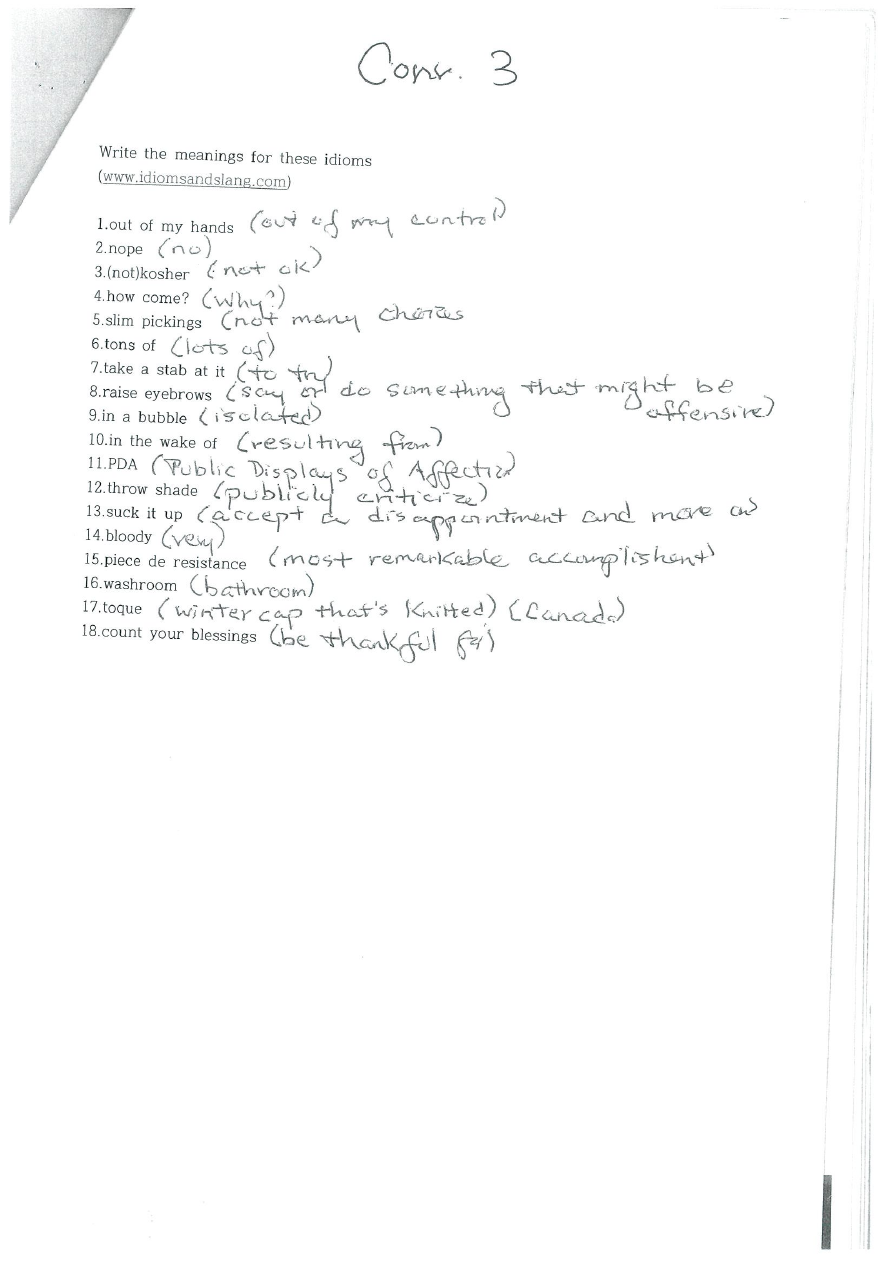 Conv. 3
Write the meanings for these idioms
(www.idiomsandslang.com)
1.out of my hands (out of my control)
2.nope (no)
3.(not)kosher (not ok)
4.how come? (Why?)
5.slim pickings (not many choices
6.tons of (lots of)
7.take a stab at it (to try)
8.raise eyebrows (say or do something that might be offensive)
9.in a bubble (isolated)
10.in the wake of (resulting from)
11.PDA (Public Displays of Affection)
12.throw shade (publicly criticize)
13.suck it up (accept a disappointment and move on)
14.bloody (very)
15.piece de resistance (most remarkable accomplishent)
16.washroom (bathroom)
17.toque (winter cap that's knitted) (Canada)
18.count your blessings (be thankful for)